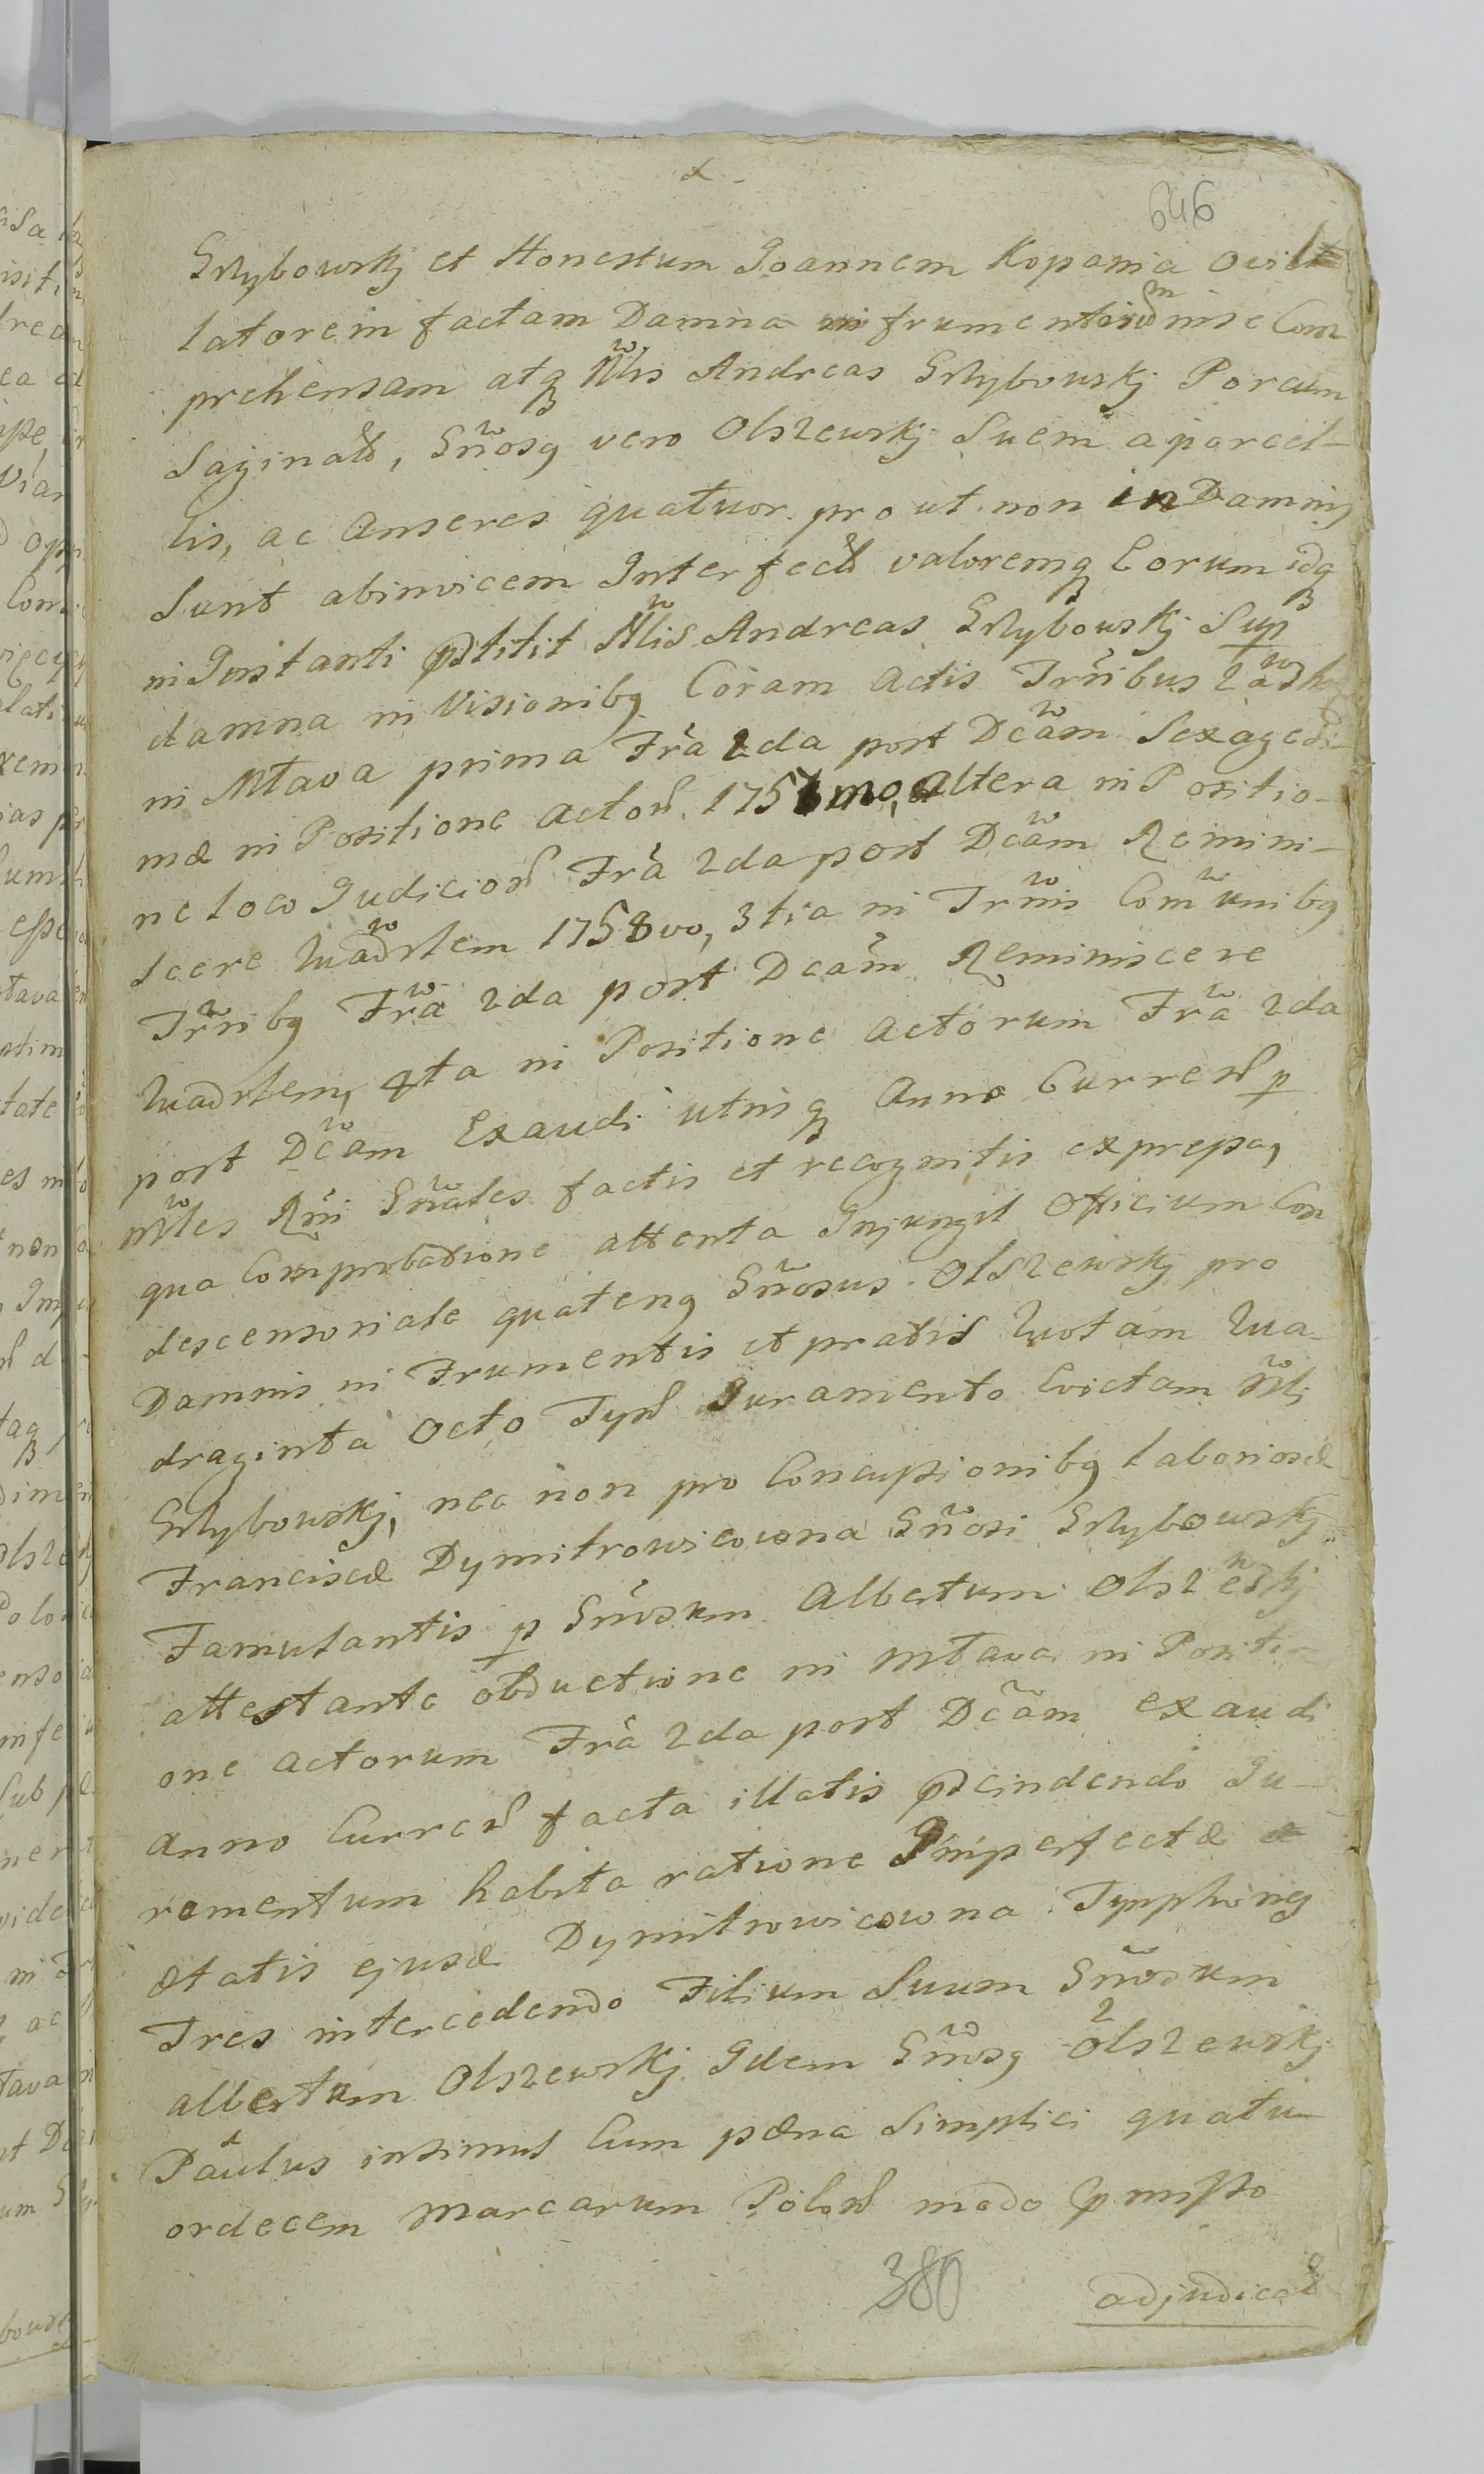 646
Grzybowskj et Honestum Joannem Kopania
latorem factam Damna in frumentis Com
prehensam atq Nlis Andreas Grzybowskj Porcum
Saginat, Gnosq vero Olszewskj Suem a porcel-
lis, ac Anseres quatuor prout non in Damnis
Sunt abinvicem Interfect valoremq Eorum idq
in Instanti Nlis Andreas Grzybowskj Sup
damna in Visionibq Coram Actis Trribus
in Mtava prima Fra 2da post Dcam Sexagesi-
mæ in Positione Actor. 1757mo, altera in Positio-
ne loco Judicior Fra 2da post Dcam Remini-
scere 1758vo, 3tia in Trmis Comunibq
Trribq Fra 2da post Dcam Reminiscere
4ta in Positione Actorum Fra 2da
post Dcam Exaudi utrisq Anno Curren p
Mtles Rni Gnales factis et recognitis
qua Comprobatione attenta Injungit Officium Con
descensoriale quatenq Gnosus Olszewskj pro
Damnis in Frumentis et pratis Quotam Qua-
draginta Octo Tyn Juramento Evictam Nli
Grzybowskj, nec non pro Concussionibq laboriosæ
Franciscæ Dymitrowicowna Gnosi Grzybowskj
Famulantis p Gnosum Albertum Olszewskj
attestante obductione in Mtava in Positi-
one Actorum Fra 2da post Dcam Exaudi
Anno Curren facta illatis Ju-
ramentum habita ratione Imperfectæ
ætatis ejusd Dymitrowicowna Tynphonq
Tres intercedendo Filium Suum Gnosum
Albertum Olszewskj Idem Gnosq Olszewskj
Paulus insimul Cum pæna Simplici quatu-
ordecem Marcarum Polon modo
380
adjudicat